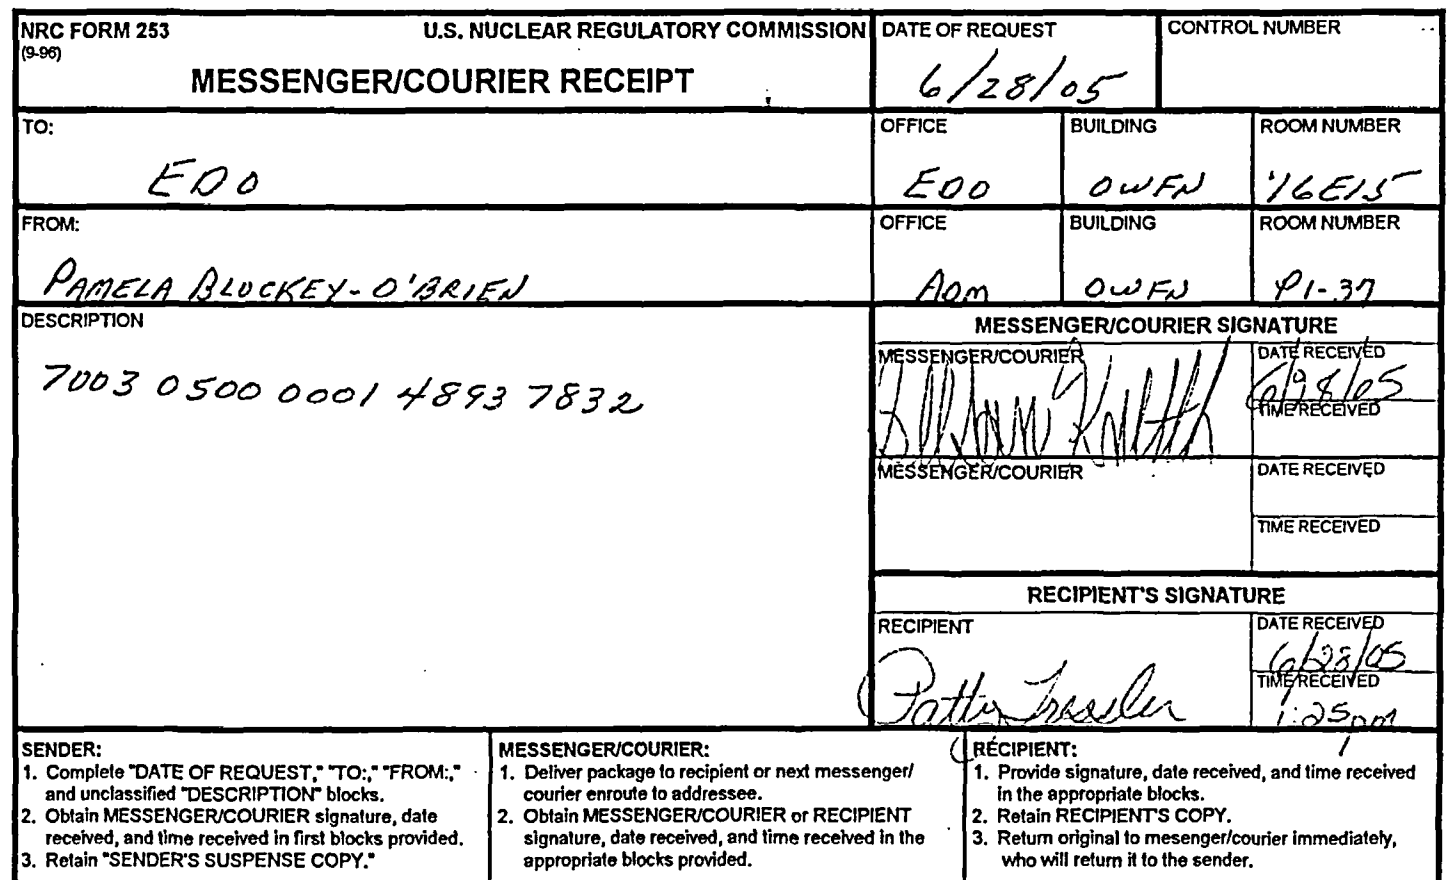 NRC FORM 253
(9-96)
U.S. NUCLEAR REGULATORY COMMISSION
MESSENGER/COURIER RECEIPT
DATE OF REQUEST
6/28/05
CONTROL NUMBER
TO:
EDO
OFFICE
EDO
BUILDING
OWFN
ROOM NUMBER
16E15
FROM:
PAMELA BLOCKEY-O'BRIEN
OFFICE
ADM
BUILDING
OWFN
ROOM NUMBER
P1-37
DESCRIPTION
7003 0500 0001 4893 7832
MESSENGER/COURIER SIGNATURE
MESSENGER/COURIER
DATE RECEIVED
6/28/05
TIME RECEIVED
MESSENGER/COURIER
DATE RECEIVED
TIME RECEIVED
RECIPIENT'S SIGNATURE
RECIPIENT
Patti Tressler
DATE RECEIVED
6/28/05
TIME RECEIVED
1:25pm
SENDER:
1. Complete "DATE OF REQUEST," "TO:," "FROM:,"
and unclassified "DESCRIPTION" blocks.
2. Obtain MESSENGER/COURIER signature, date
received, and time received in first blocks provided.
3. Retain "SENDER'S SUSPENSE COPY."
MESSENGER/COURIER:
1. Deliver package to recipient or next messenger/
courier enroute to addressee.
2. Obtain MESSENGER/COURIER or RECIPIENT
signature, date received, and time received in the
appropriate blocks provided.
RECIPIENT:
1. Provide signature, date received, and time received
in the appropriate blocks.
2. Retain RECIPIENT'S COPY.
3. Return original to mesenger/courier immediately,
who will return it to the sender.